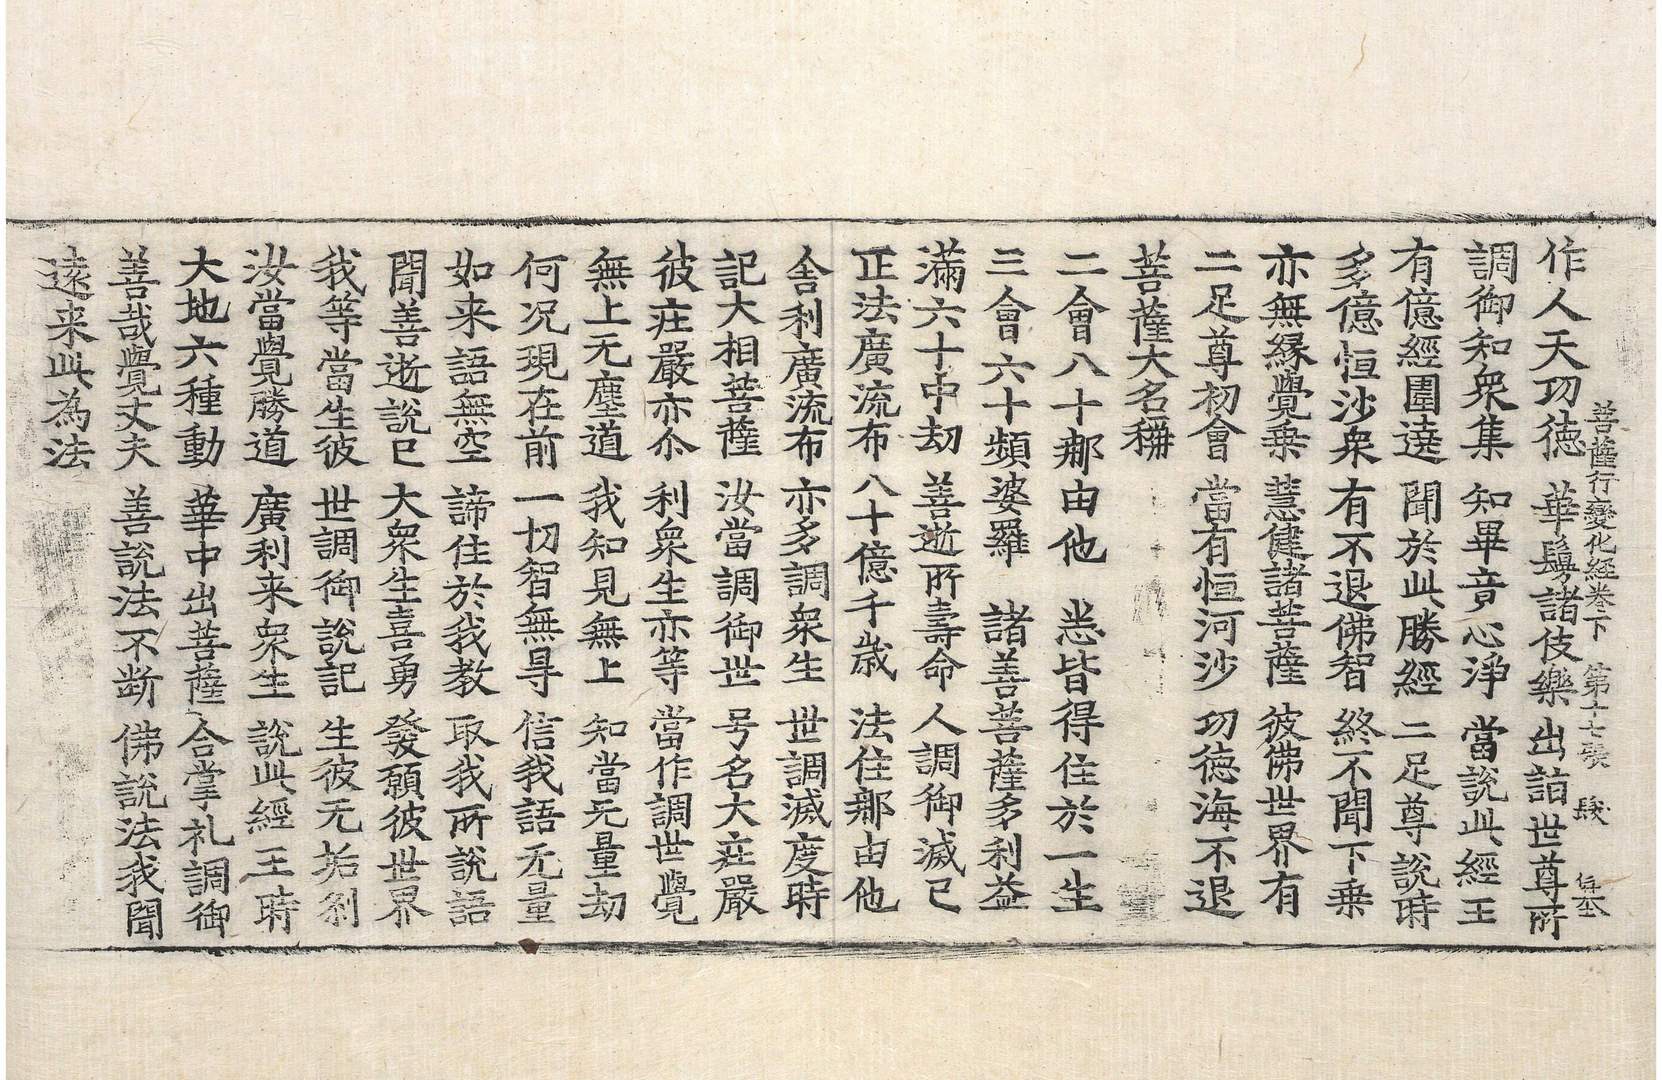 菩薩行變化經卷下 第十七張 使
作人天功德 華鬘諸伎樂 出詣世尊所
調御知衆集 知畢竟心淨 當說此經王
有億經圍遶 聞於此勝經 二足尊說時
多億恒沙衆 有不退佛智 終不聞下乗
亦無縁覺乗 慧健諸菩薩 彼佛世界有
二足尊初會 當有恒河沙 功德海不退
菩薩大名稱
二會八十那由他 悉皆得住於一生
三會六十頻婆羅 諸善菩薩多利益
滿六十中劫 善逝所壽命 人調御滅已
正法廣流布 八十億千歳 法住那由他
舍利廣流布 亦多調衆生 世調滅度時
記大相菩薩 汝當調御世 号名大莊嚴
彼莊嚴亦尒 利衆生亦等 當作調世覺
無上无塵道 我知見無上 知當无量劫
何况現在前 一切智無㝵 信我語无量
如来語無空 諦住於我教 取我所說語
聞善逝說已 大衆生喜勇 發願彼世界
我等當生彼 世調御說記 生彼无垢刹
汝當覺勝道 廣利来衆生 說此經王時
大地六種動 華中出菩薩 合掌礼調御
善哉覺丈夫 善說法不断 佛說法我聞
遠来此為法